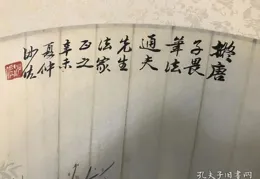 拟唐
子畏
笔法
通夫
先生
法家
正之
辛未
夏仲
孔夫子旧书网